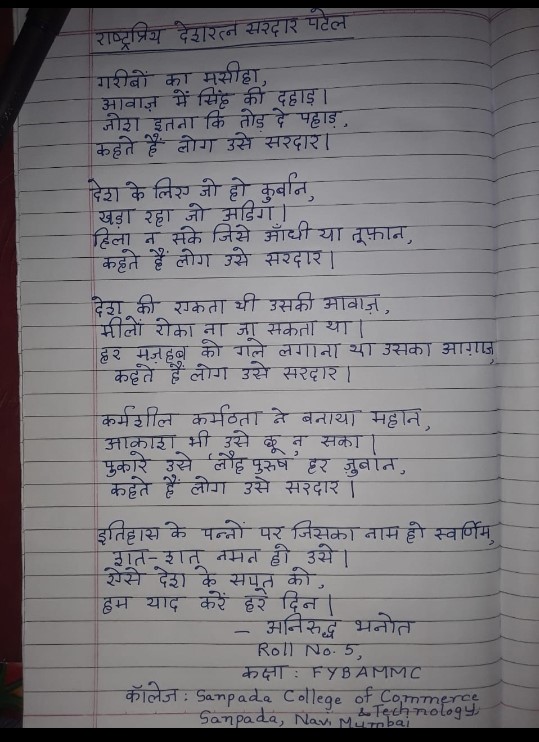 राष्ट्रप्रिय देशरत्न सरदार पटेल
गरीबों का मसीहा,
आवाज़ में सिंह की दहाड़।
जोश इतना कि तोड़ दे पहाड़,
कहते हैं लोग उसे सरदार।
देश के लिए जो हो कुर्बान,
खड़ा रहा जो अडिग।
हिला न सके जिसे आँधी या तूफ़ान,
कहते हैं लोग उसे सरदार।
देश की एकता थी उसकी आवाज़,
मीलों रोका ना जा सकता था।
हर मज़हब को गले लगाना था उसका आग़ाज़,
कहते हैं लोग उसे सरदार।
कर्मशील कर्मठता ने बनाया महान,
आकाश भी उसे छू न सका।
पुकारे उसे 'लौह पुरुष' हर ज़ुबान,
कहते हैं लोग उसे सरदार।
इतिहास के पन्नों पर जिसका नाम हो स्वर्णिम,
शत-शत नमन हो उसे।
ऐसे देश के सपूत को,
हम याद करें हर दिन।
- अनिरुद्ध भनोत
Roll No. 5,
कक्षा : FYBAMMC
कॉलेज : Sanpada College of Commerce
& Technology,
Sanpada, Navi Mumbai